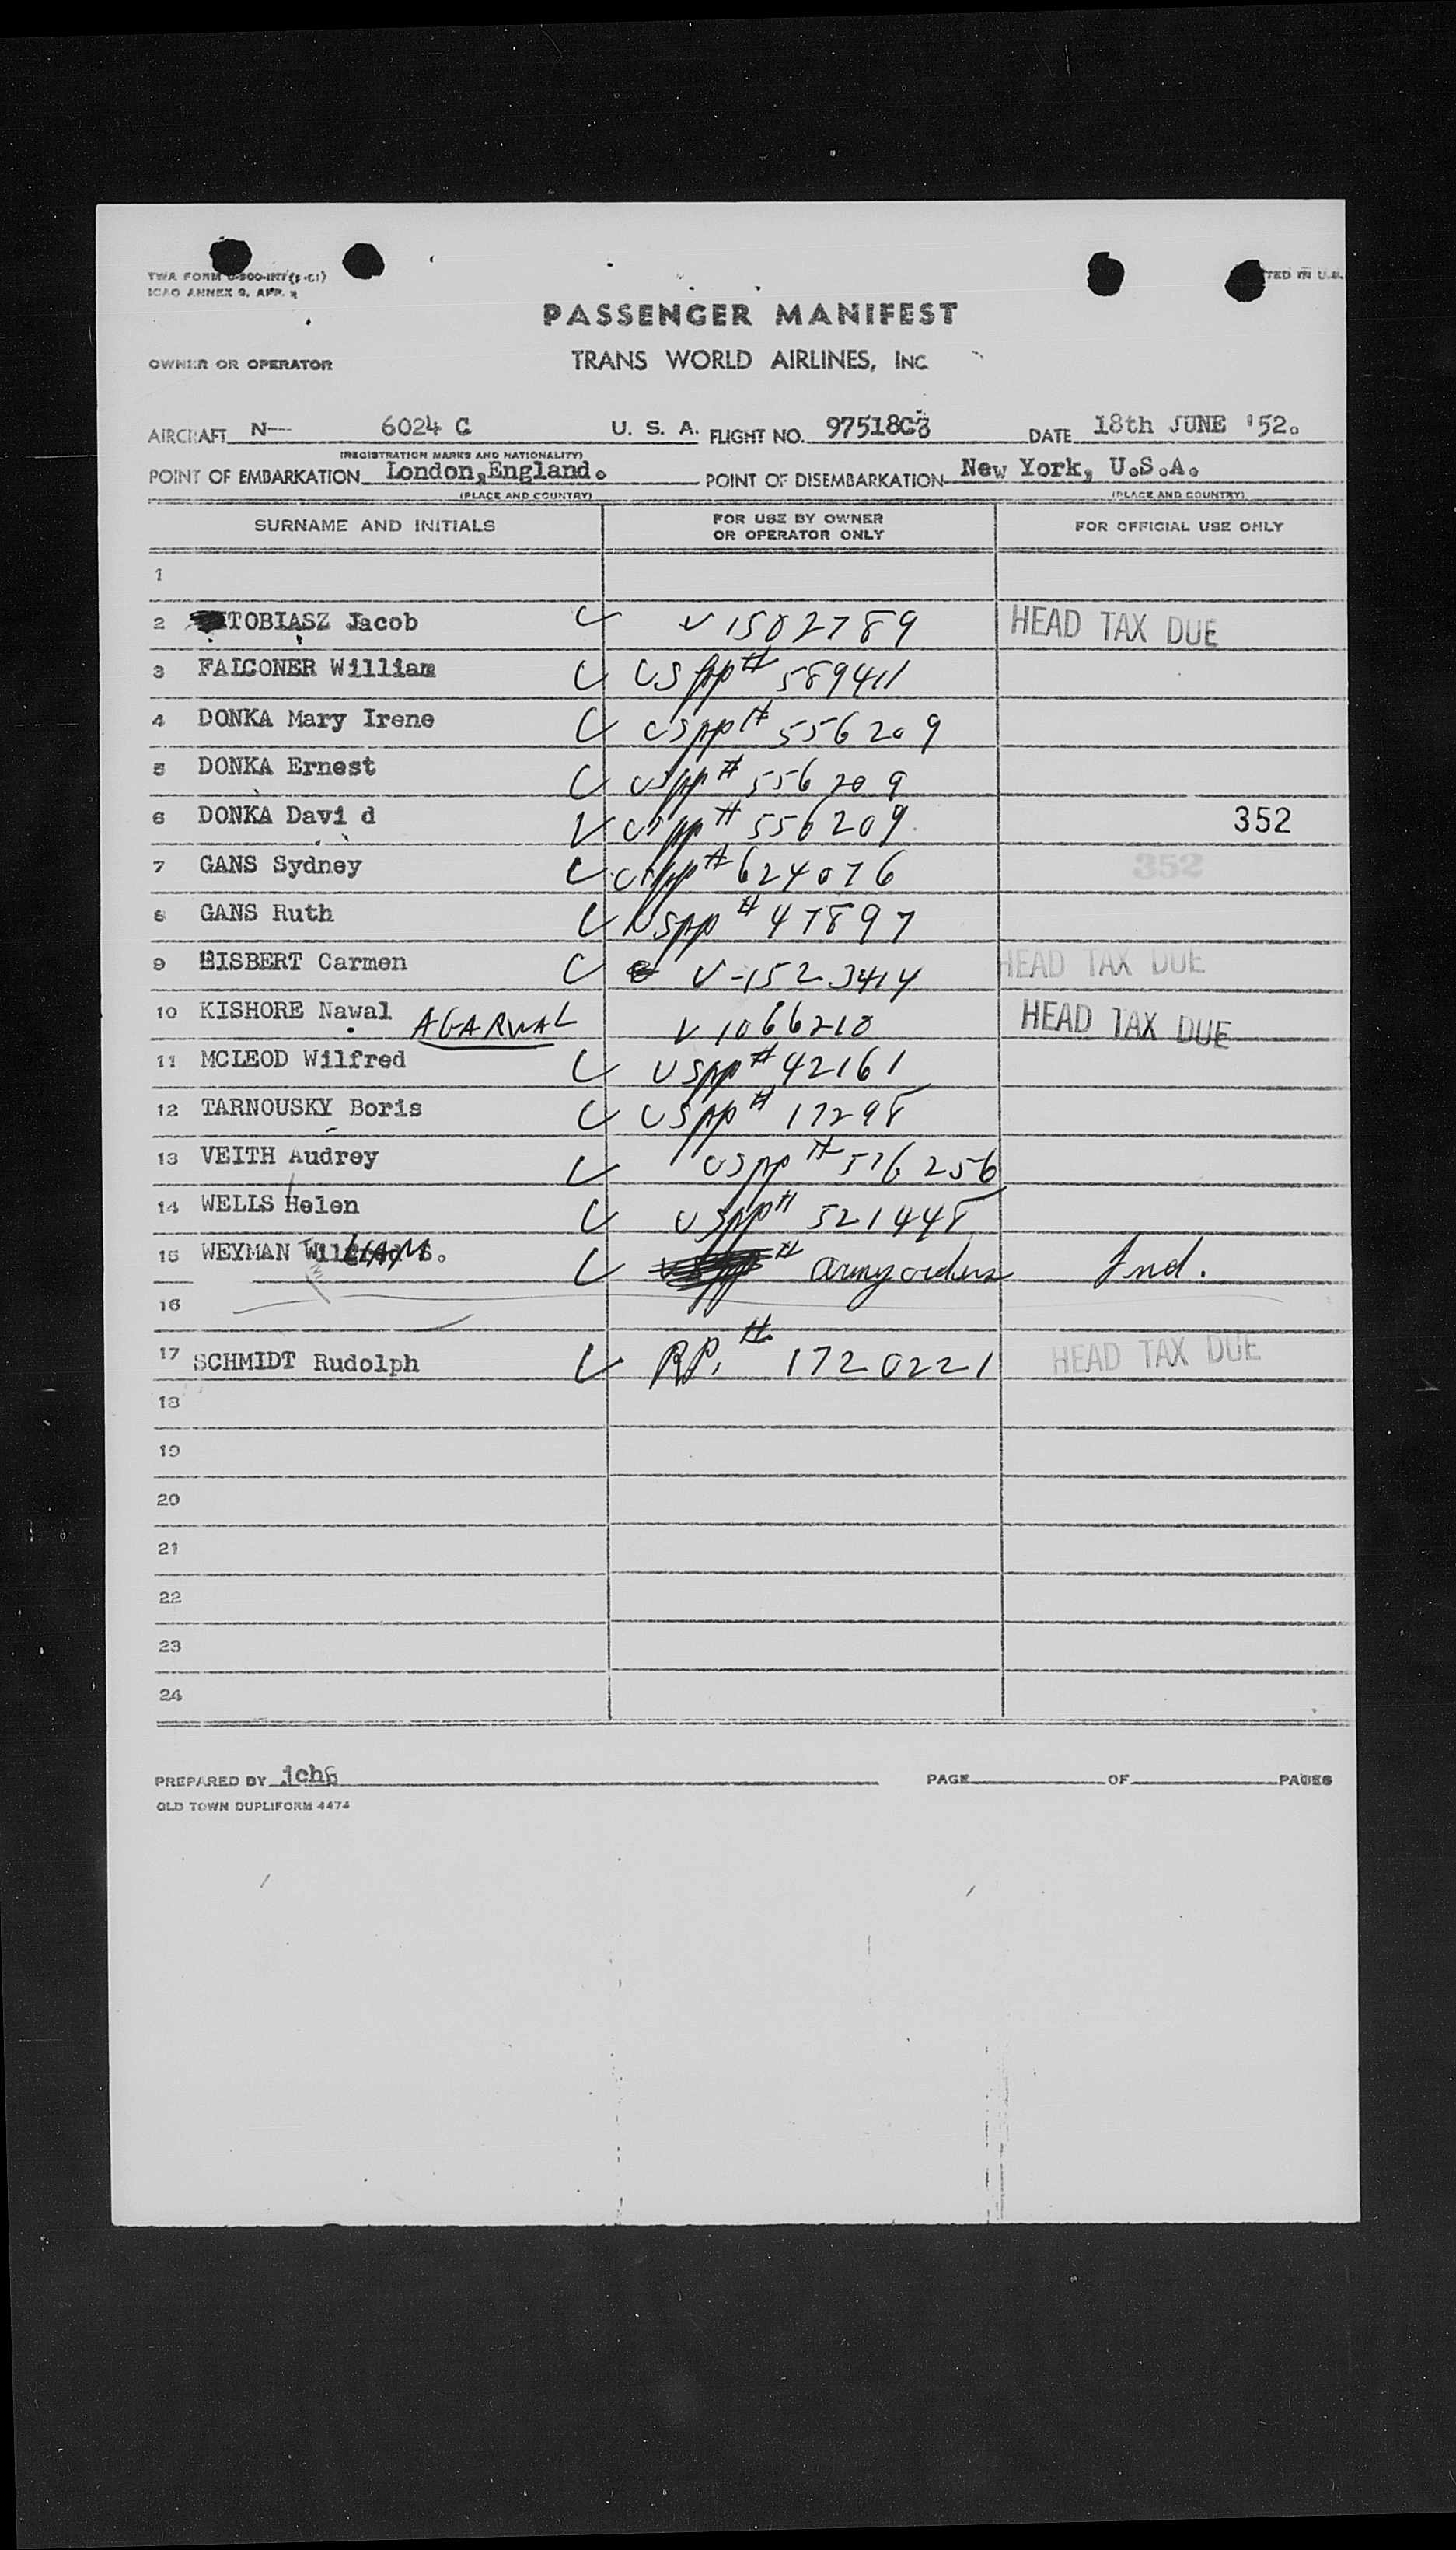 TWA FORM
ICAO ANNEX 9, APP.
TED IN U.S.
PASSENGER MANIFEST
OWNER OR OPERATOR TRANS WORLD AIRLINES, INC
AIRCRAFT N— 6024 C U. S. A. FLIGHT NO. DATE 18th JUNE '52.
(REGISTRATION MARKS AND NATIONALITY)
POINT OF EMBARKATION London,England. POINT OF DISEMBARKATION New York, U.S.A.
(PLACE AND COUNTRY) (PLACE AND COUNTRY)
SURNAME AND INITIALS FOR USE BY OWNER OR OPERATOR ONLY FOR OFFICIAL USE ONLY
1
2 TOBIASZ Jacob V 1502789 HEAD TAX DUE
3 FALCONER William US pp# 589411
4 DONKA Mary Irene US pp# 556209
5 DONKA Ernest US pp# 556209
6 DONKA Davi d US pp# 556209 352
7 GANS Sydney US pp# 624076 352
8 GANS Ruth US pp# 47897
9 EISBERT Carmen V-1523414 HEAD TAX DUE
10 KISHORE Nawal AGARWAL V 1066210 HEAD TAX DUE
11 MCLEOD Wilfred US pp# 42161
12 TARNOUSKY Boris US pp# 17298
13 VEITH Audrey US pp# 576256
14 WELLS Helen US pp# 521448
15 WEYMAN WilLIAM S. # Army orders Ind.
16
17 SCHMIDT Rudolph RP. # 1720221 HEAD TAX DUE
18
19
20
21
22
23
24
PREPARED BY PAGE OF PAGES
OLD TOWN DUPLIFORM 4474